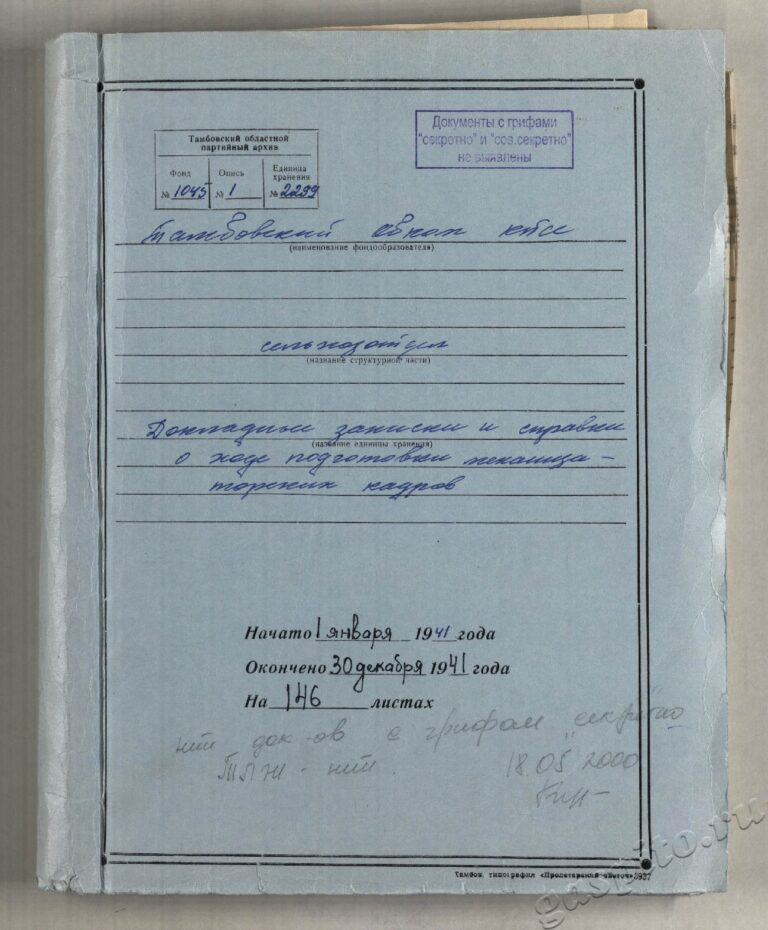 Тамбовский областной
партийный архив
Фонд
Опись
Единица
хранения
№ 1045
№ 1
№ 2299
Документы с грифами
"секретно" и "сов.секретно"
не выявлены
Тамбовский обком КПСС
(наименование фондообразователя)
сельхозотдел
(название структурной части)
Докладные записки и справки
(название единицы хранения)
о ходе подготовки механиза-
торских кадров
Начато 1 января 1941 года
Окончено 30 декабря 1941 года
На 146 листах
нет док-ов с грифом "секретно
ТЛЖ - нет.
18.05 2000
Тамбов, типография «Пролетарский светоч»
gaspito.ru